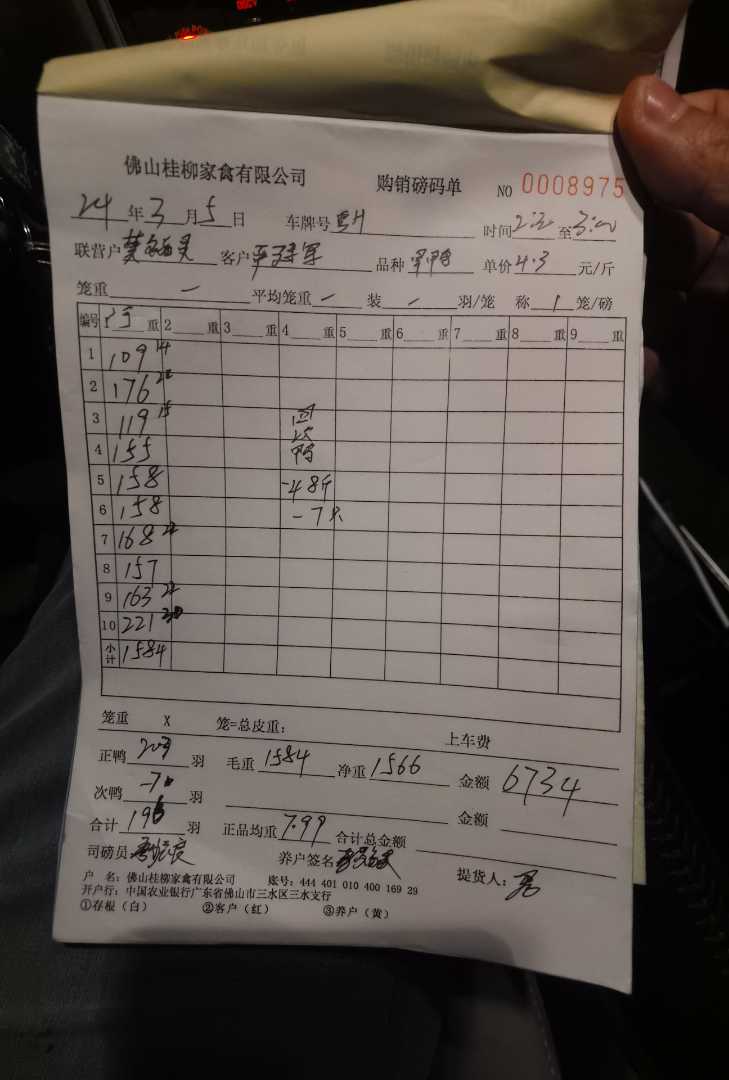 佛山桂柳家禽有限公司 购销磅码单 NO 0008975
24年3月5日 车牌号 时间 至3:00
联营户 客户 品种 单价4.3元/斤
笼重 — 平均笼重 — 装 — 羽/笼 称 1 笼/磅
编号 重 2 重 3 重 4 重 5 重 6 重 7 重 8 重 9 重
1 109 14
2 176 22
3 119 15
4 155
5 158 -48斤
6 158 -7只
7 168 22
8 157
9 163 22
10 221 30
小计 1584
笼重 X 笼=总皮重: 上车费
正鸭 203 羽 毛重 1584 净重 1566 金额 6734
次鸭 -7 羽 金额
合计 196 羽 正品均重 7.99 合计总金额
司磅员 养户签名 提货人:
户 名: 佛山桂柳家禽有限公司 账号: 444 401 010 400 169 29
开户行: 中国农业银行广东省佛山市三水区三水支行
①存根（白） ②客户（红） ③养户（黄）